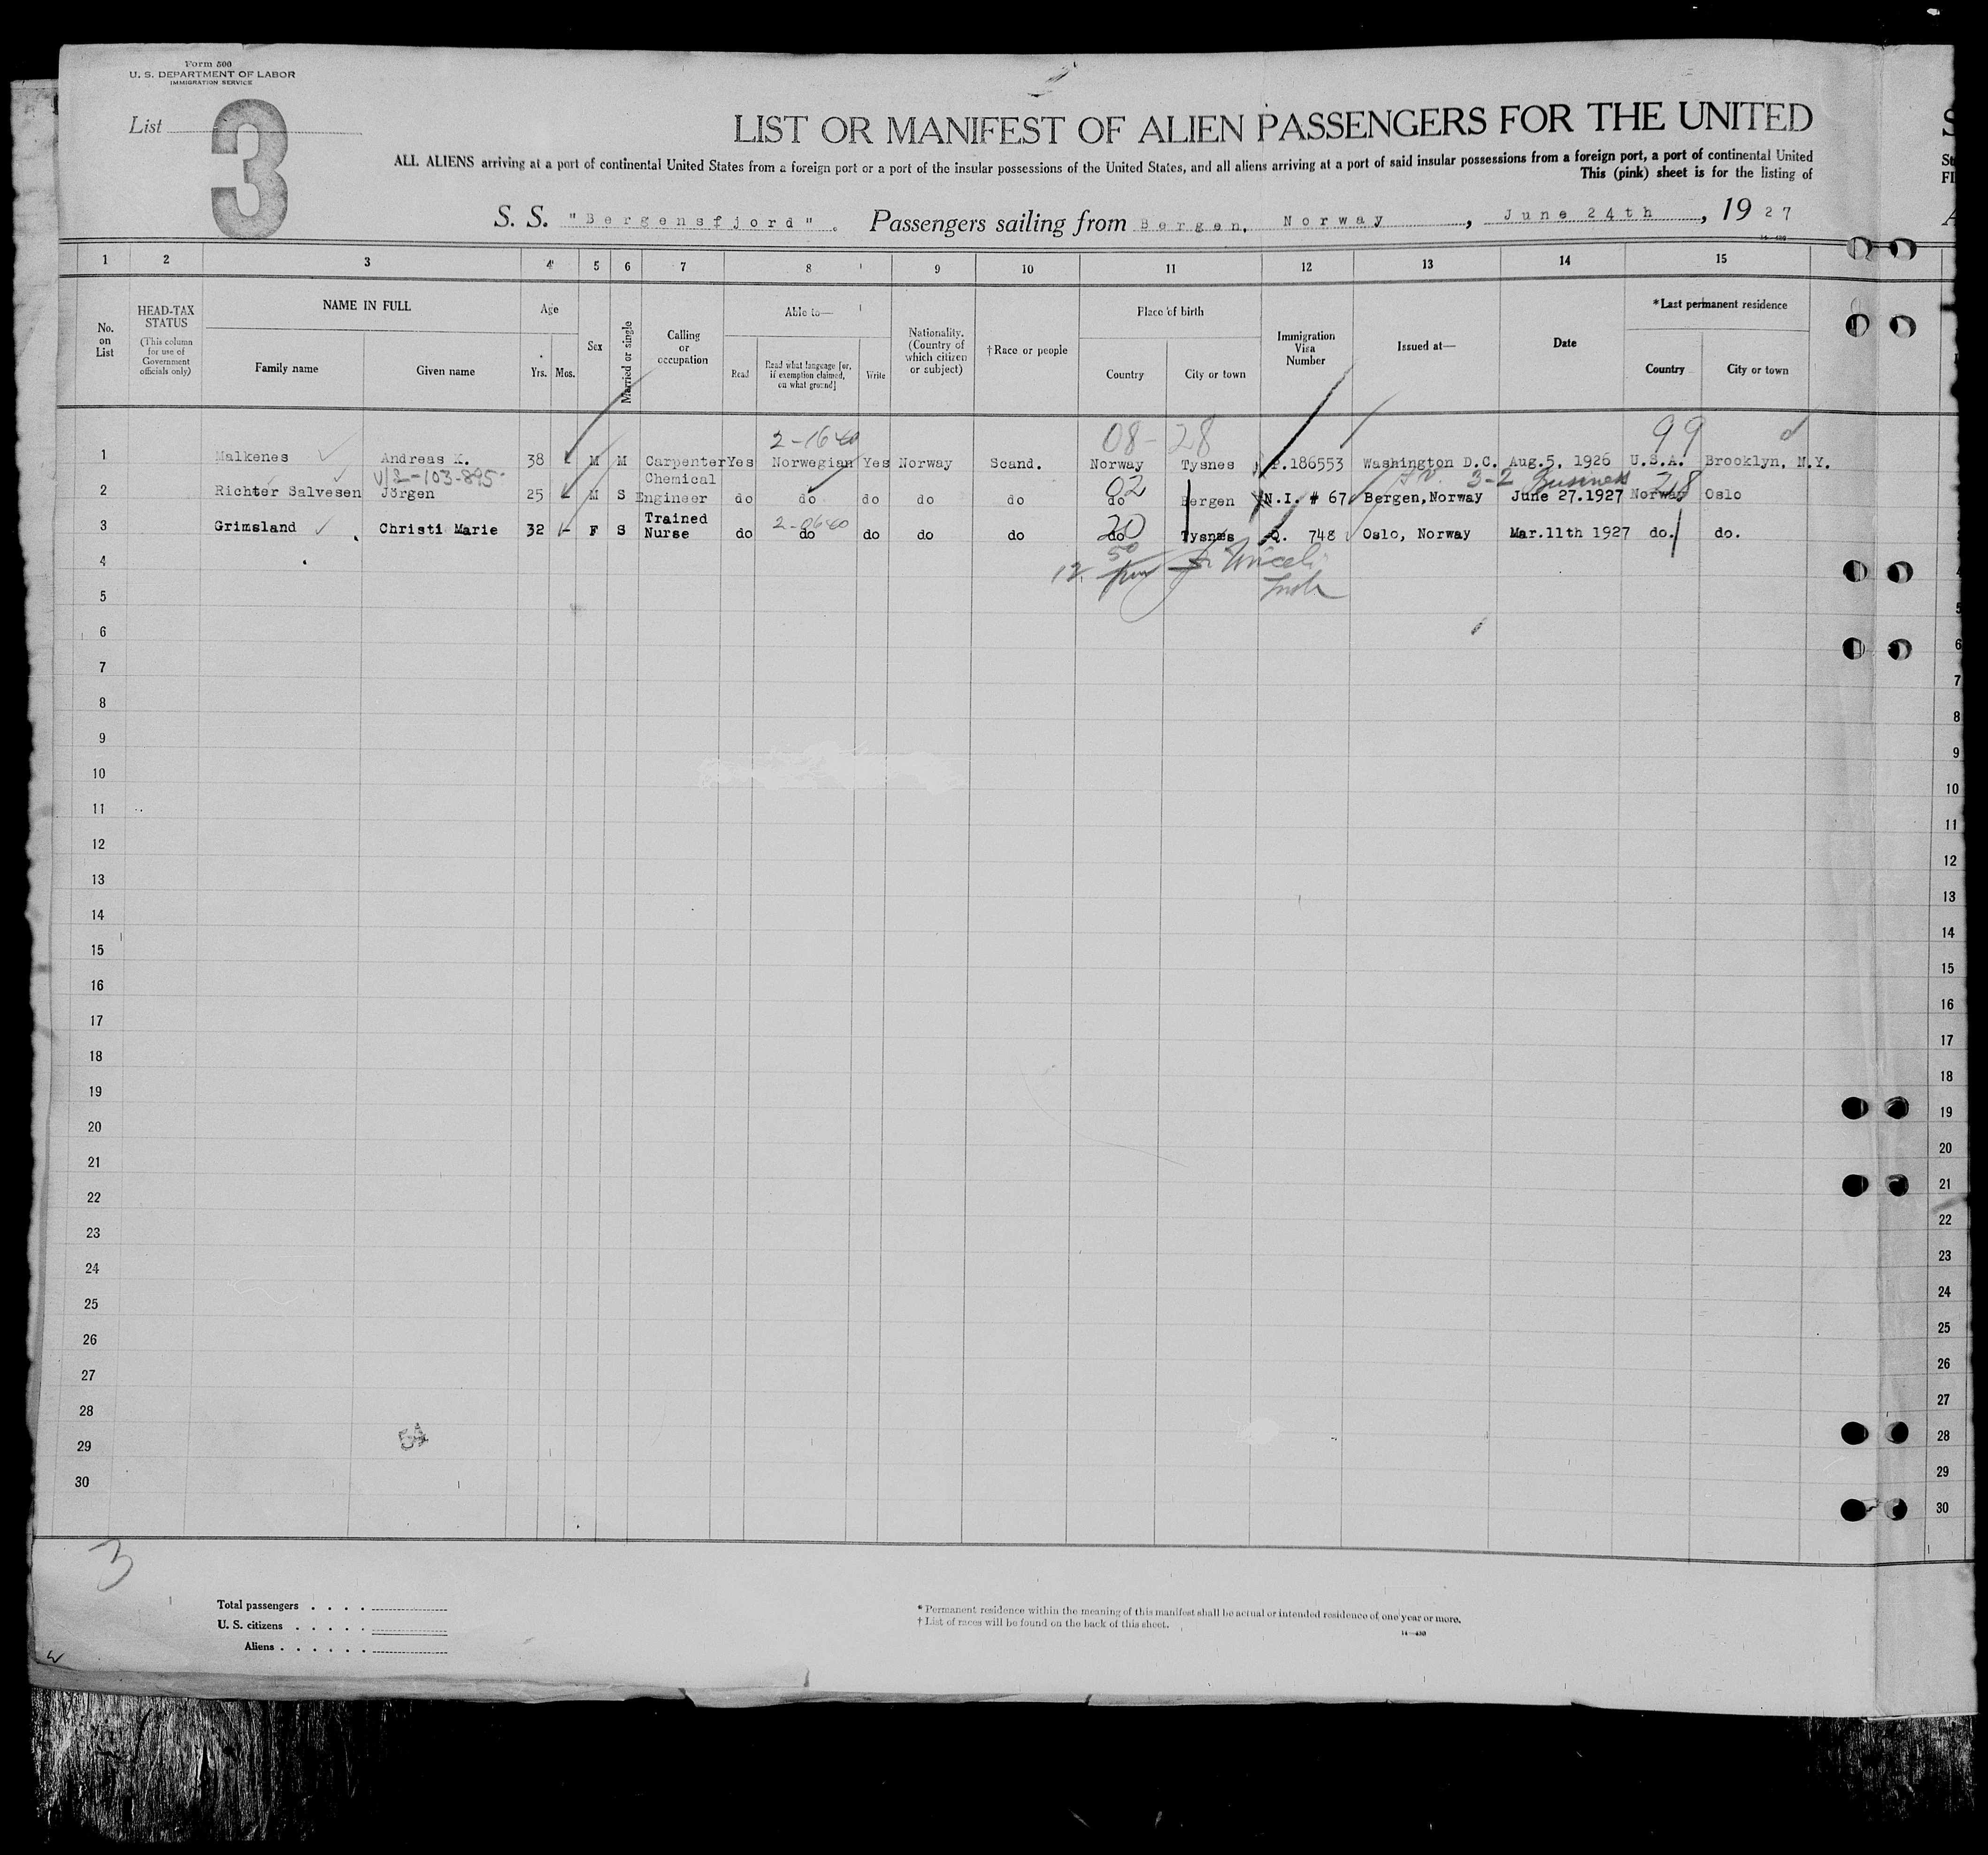 Form 500
U. S. DEPARTMENT OF LABOR
IMMIGRATION SERVICE
List 3
LIST OR MANIFEST OF ALIEN PASSENGERS FOR THE UNITED
ALL ALIENS arriving at a port of continental United States from a foreign port or a port of the insular possessions of the United States, and all aliens arriving at a port of said insular possessions from a foreign port, a port of continental United
This (pink) sheet is for the listing of
S. S. "Bergensfjord". Passengers sailing from Bergen, Norway, June 24th, 1927
1 2 3 4 5 6 7 8 9 10 11 12 13 14 15
No. on List
HEAD-TAX STATUS
(This column for use of Government officials only)
NAME IN FULL
Family name Given name
Age
Yrs. Mos.
Sex
Married or single
Calling or occupation
Able to—
Read
Read what language [or, if exemption claimed, on what ground]
Write
Nationality. (Country of which citizen or subject)
†Race or people
Place of birth
Country City or town
Immigration Visa Number
Issued at—
Date
*Last permanent residence
Country City or town
2-1640 08-28 99
1 Malkenes Andreas K. 38 M M Carpenter Yes Norwegian Yes Norway Scand. Norway Tysnes P.186553 Washington D.C. Aug.5, 1926 U.S.A. Brooklyn, N.Y.
V/2-103-895 Chemical 02 3-2 Business 28
2 Richter Salvesen Jörgen 25 M S Engineer do do do do do do Bergen N.I. # 67 Bergen,Norway June 27.1927 Norway Oslo
Trained 2-0640 20
3 Grimsland Christi Marie 32 - F S Nurse do do do do do do Tysnes Q. 748 Oslo, Norway Mar.11th 1927 do. do.
4
12 50
5
6
7
8
9
10
11
12
13
14
15
16
17
18
19
20
21
22
23
24
25
26
27
28
29
30
3
Total passengers
U. S. citizens
Aliens
*Permanent residence within the meaning of this manifest shall be actual or intended residence of one year or more.
†List of races will be found on the back of this sheet.
14—430